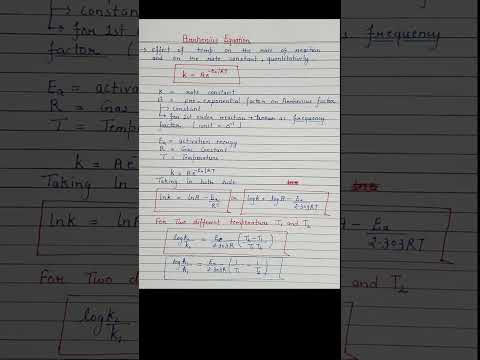 Arrhenius Equation
→ effect of temp. on the rate of reaction
and on the rate constant, quantitatively
k = Ae^-Ea/RT
K = rate constant
A = pre-exponential factor or Arrhenius factor
→ constant
→ for 1st order reaction known as frequency
factor (unit = s⁻¹)
Ea = activation energy
R = Gas Constant
T = Temperature
k = Ae^-Ea/RT
Taking ln both side
lnk = lnA - Ea/RT or logk = logA - Ea/2.303RT
For Two different temperature T₁ and T₂
log k₂/k₁ = Ea/2.303R (T₂-T₁/T₁T₂)
log k₂/k₁ = Ea/2.303R (1/T₁ - 1/T₂)